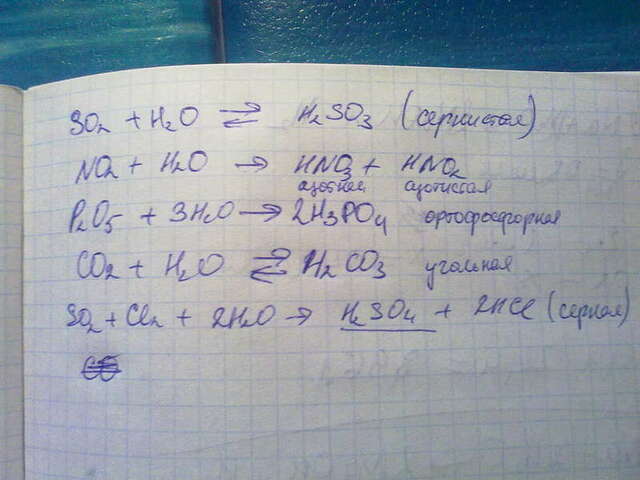 SO₂ + H₂O ⇄ H₂SO₃ (сернистая)
NO₂ + H₂O → HNO₃ + HNO₂
азотная азотистая
P₂O₅ + 3H₂O → 2H₃PO₄ ортофосфорная
CO₂ + H₂O ⇄ H₂CO₃ угольная
SO₂ + Cl₂ + 2H₂O → H₂SO₄ + 2HCl (серная)